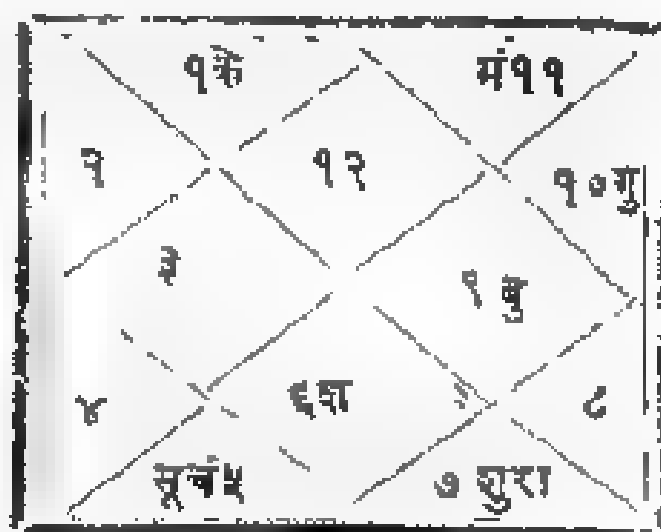 १के
मं११
२
१२
१०गु
३
९ बु
४
६श
८
सूचं५
७ शुरा